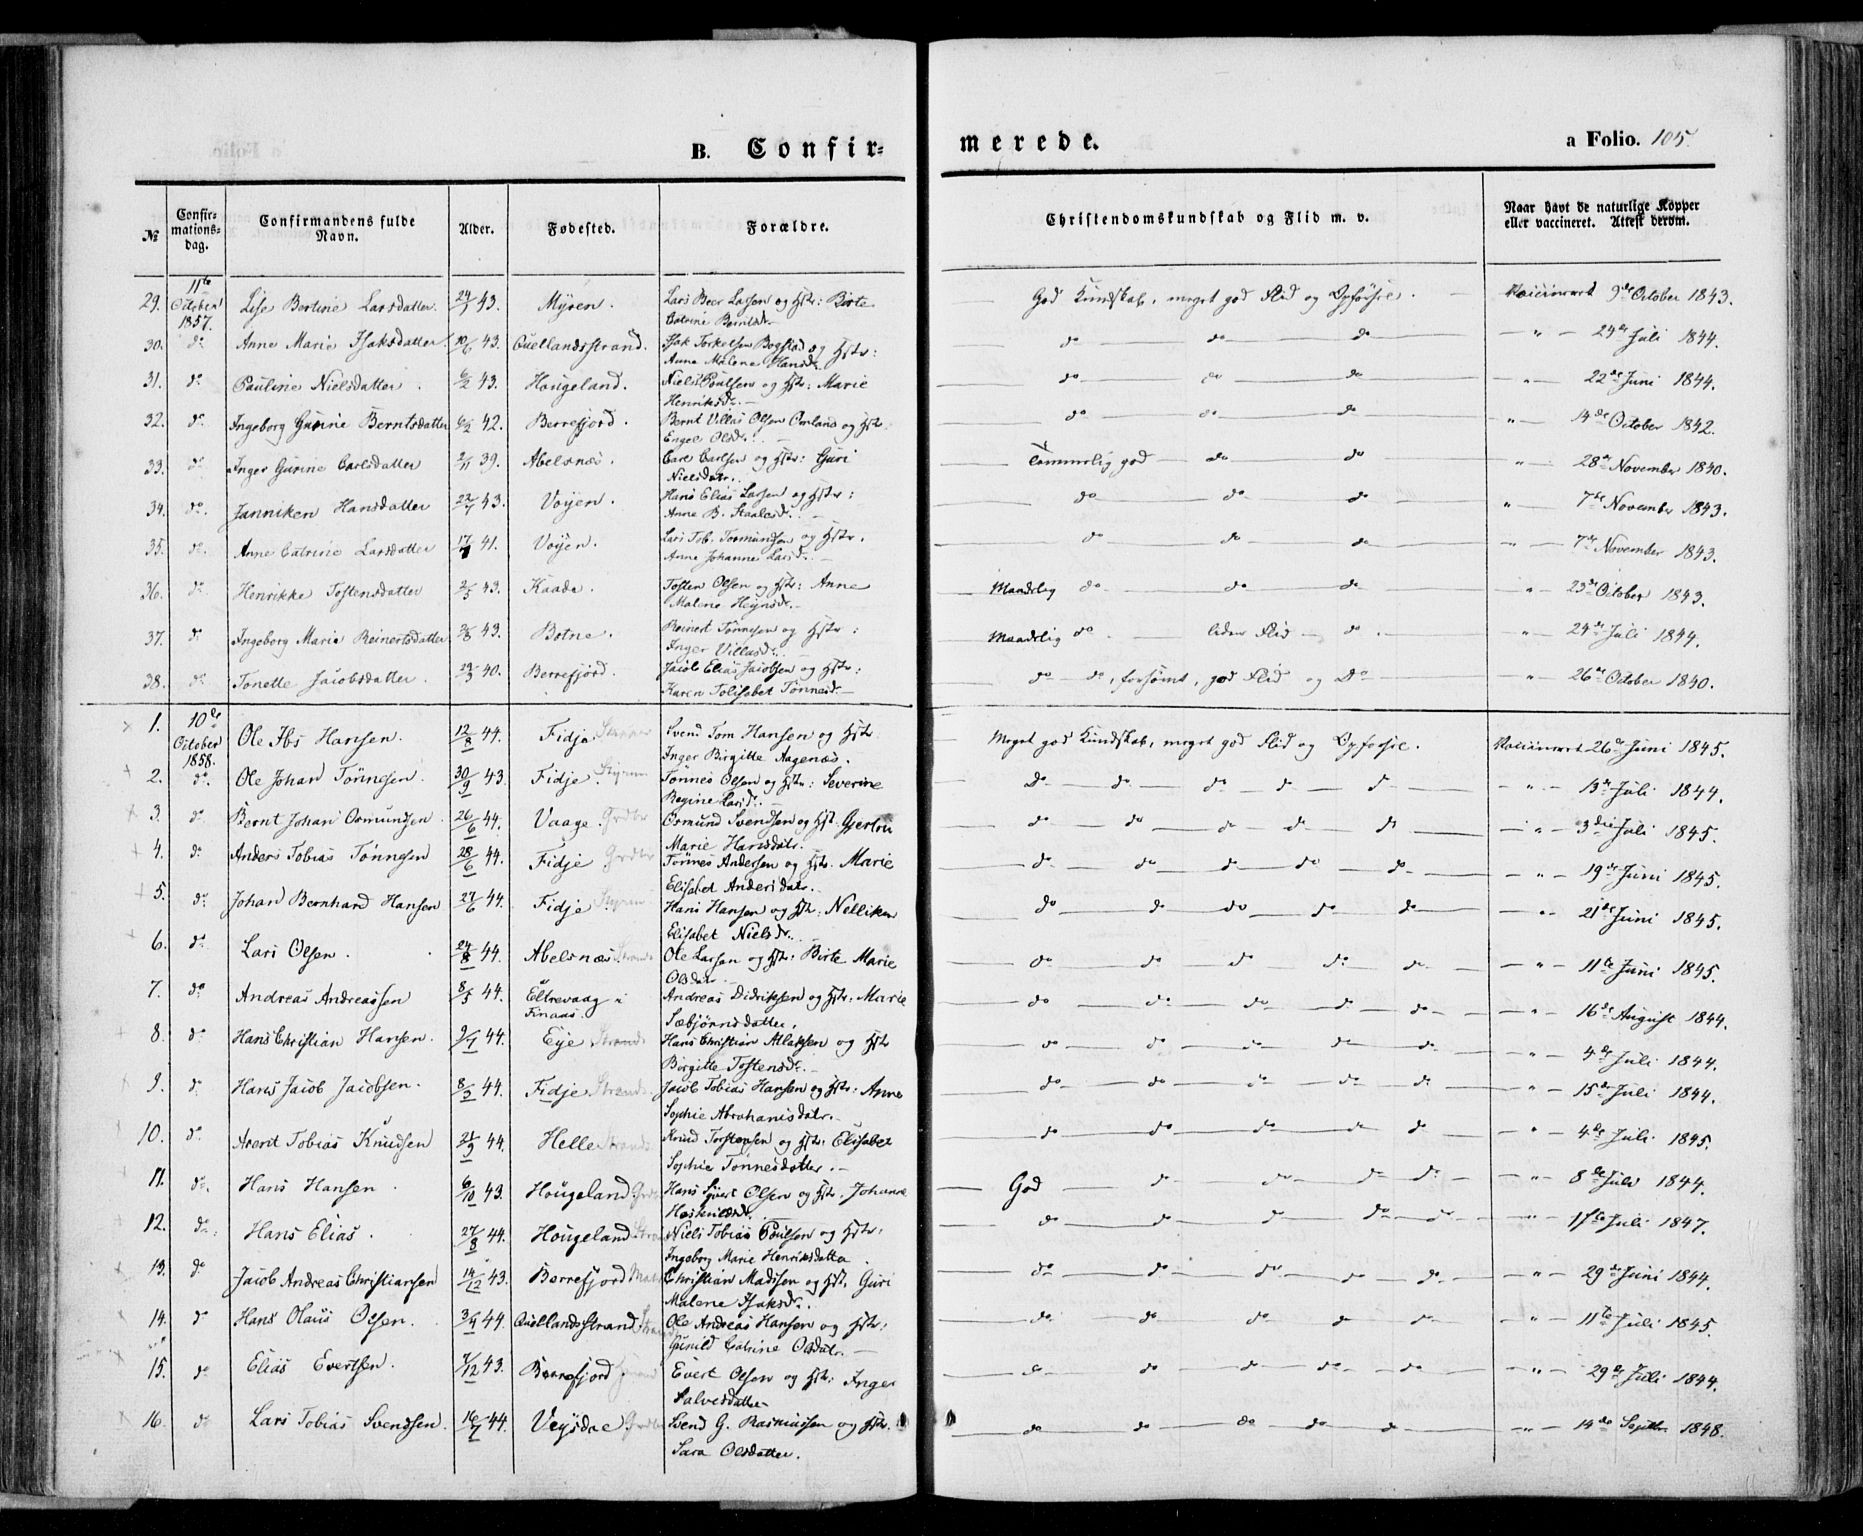 B. Confirmerede. a Folio. 105.
№ Confirmationsdag. Confirmandens fulde Navn. Alder. Fødested. Forældre. Christendomskundskab og Flid m. v. Naar havt de naturlige Kopper eller vaccineret. Attest derom.
29. 11te October 1857. Lise Bertine Larsdatter 43. Myren. Lars Beer Larsen og Hstr: Birte Catrine Berntsdr. God Kundskab, meget god Flid og Opførsel. Vaccineret 9de October 1843.
30. do Anne Marie Isaksdatter 10/6 43. Quellandsstrand. Isak Torkelsen Bogstad og Hstr: Anne Malene Hansdr. do do do " 24de Juli 1844.
31. do Pauline Nielsdatter 6/2 43. Hougeland. Niels Poulsen og Hstr: Marie Henriksdr. do do do " 22de Juni 1844.
32. do Ingeborg Gurine Berntsdatter 42. Berrefjord. Bernt Villas Olsen Omland og Hstr. Engel Olsdr. do do do " 14de October 1842.
33. do Inger Gurine Carlsdatter 2/11 39. Abelsnæs. Carl Carlsen og Hstr: Guri Nielsdatr. Temmelig god do do " 28de November 1840.
34. do Janniken Hansdatter 43. Voyen. Hans Elias Larsen og Hstr: Anne B. Staalesdr. do do do " 7de November 1843.
35. do Anne Catrine Larsdatter 41. Voyen. Lars Tob. Tormundsen og Hstr. Anne Johanne Larsdr. do do do " 7de November 1843.
36. do Henrikke Tostensdatter 2/5 43. Kaada. Tosten Olsen og Hstr: Anne Malene Heynsdr. Maadelig do do do " 23de October 1843.
37. do Ingeborg Marie Reinertsdatter 43. Botne. Reinert Tønnesen og Hstr: Inger Villasdr. Maadelig do liden Flid do " 24de Juli 1844.
38. do Tonette Jacobsdatter 40. Berrefjord. Jacob Elias Jacobsen og Hstr: Karen Tolisabet Tønnesdr. do do, forsømt, god Flid og Do " 26de October 1840.
1. 10de October 1858. Ole Ibs Hansen. 12/8 44. Fidje Svend Tom Hansen og Hstr Inger Birgitte Aagenæs. Meget god Kundskab, meget god Flid og Opførsel. Vaccineret 26de Juni 1845.
2. do Ole Johan Tønnesen. 30/9 43. Fidje Styrm Tønnes Olsen og Hstr: Severine Regine Larsdr. Do do do do do " 13de Juli 1844.
3. do Bernt Johan Osmundsen 26/6 44. Vaage Grdbr Osmund Svendsen og Hst. Gjertru Marie Hansdatr. do do do do do " 3die Juli 1845.
4. do Anders Tobias Tønnesen 28/6 44. Fidje Grdbr Tønnes Andersen og Hstr. Marie Elisabet Andersdatr. do do do do do " 19de Juni 1845.
5. do Johan Bernhard Hansen 27/6 44. Fidje Styrm Hans Hansen og Hstr: Nelliken Elisabet Nielsdr. do do do do do " 21de Juni 1845.
6. do Lars Olsen. 24/8 44. Abelsnæs Strands Ole Larsen og Hstr: Birte Marie Olsdatr. do do do do do " 11te Juni 1845.
7. do Andreas Andreassen 8/5 44. Eltrevaag i Finaas. Andreas Didriksen og Hstr: Marie Sæbjørnsdatter. do do do do do " 16de August 1844.
8. do Hans Christian Hansen. 44. Eje Strands Hans Christian Atlaksen og Hstr Birgitte Tostensdr. do do do do do " 4de Juli 1844.
9. do Hans Jacob Jacobsen. 44. Fidje Strands Jacob Tobias Hansen og Hstr: Anne Sophie Abrahamsdatr. do do do do do " 15de Juli 1844.
10. do Averit Tobias Knudsen 44. Helle Strands Knud Torstensen og Hstr. Elisabet Sophie Tønnesdatter. do do do do do " 4de Juli 1845.
11. do Hans Hansen 6/10 43. Hougeland Grdbr Hans Syvert Olsen og Hstr. Johanne God do do do do " 8de Juli 1844.
12. do Hans Elias. 27/8 44. Hougeland Strand Niels Tobias Poulsen og Hstr. Ingeborg Marie Henriksdatta do do do do do " 17de Juli 1847.
13. do Jacob Andreas Christiansen 14/12 43. Berrefjord Christian Madssen og Hst. Guri Malene Isaksdr. do do do do do " 29de Juni 1844.
14. do Hans Olaus Olsen. 44. Quellandsstrand Strand Ole Andreas Hansen og Hstr: Gunild Catrine Olsdatr. do do do do do " 11te Juli 1845.
15. do Elias Evertsen. 7/12 43. Berrefjord Evert Olsen og Hstr: Inger Salvesdatter do do do do do " 29de Juli 1844.
16. do Lars Tobias Svendsen. 16/7 44. Veysdal Grdbr Svend G. Rasmussen og Hstr. Sara Olsdatter. do do do do do " 14de Septbr 1848.